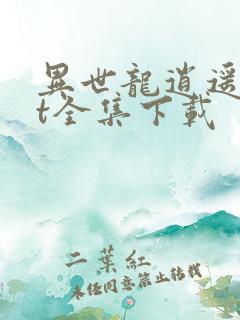 異世龍逍遥
t全集下載
二葉紅
未经同意禁止转载